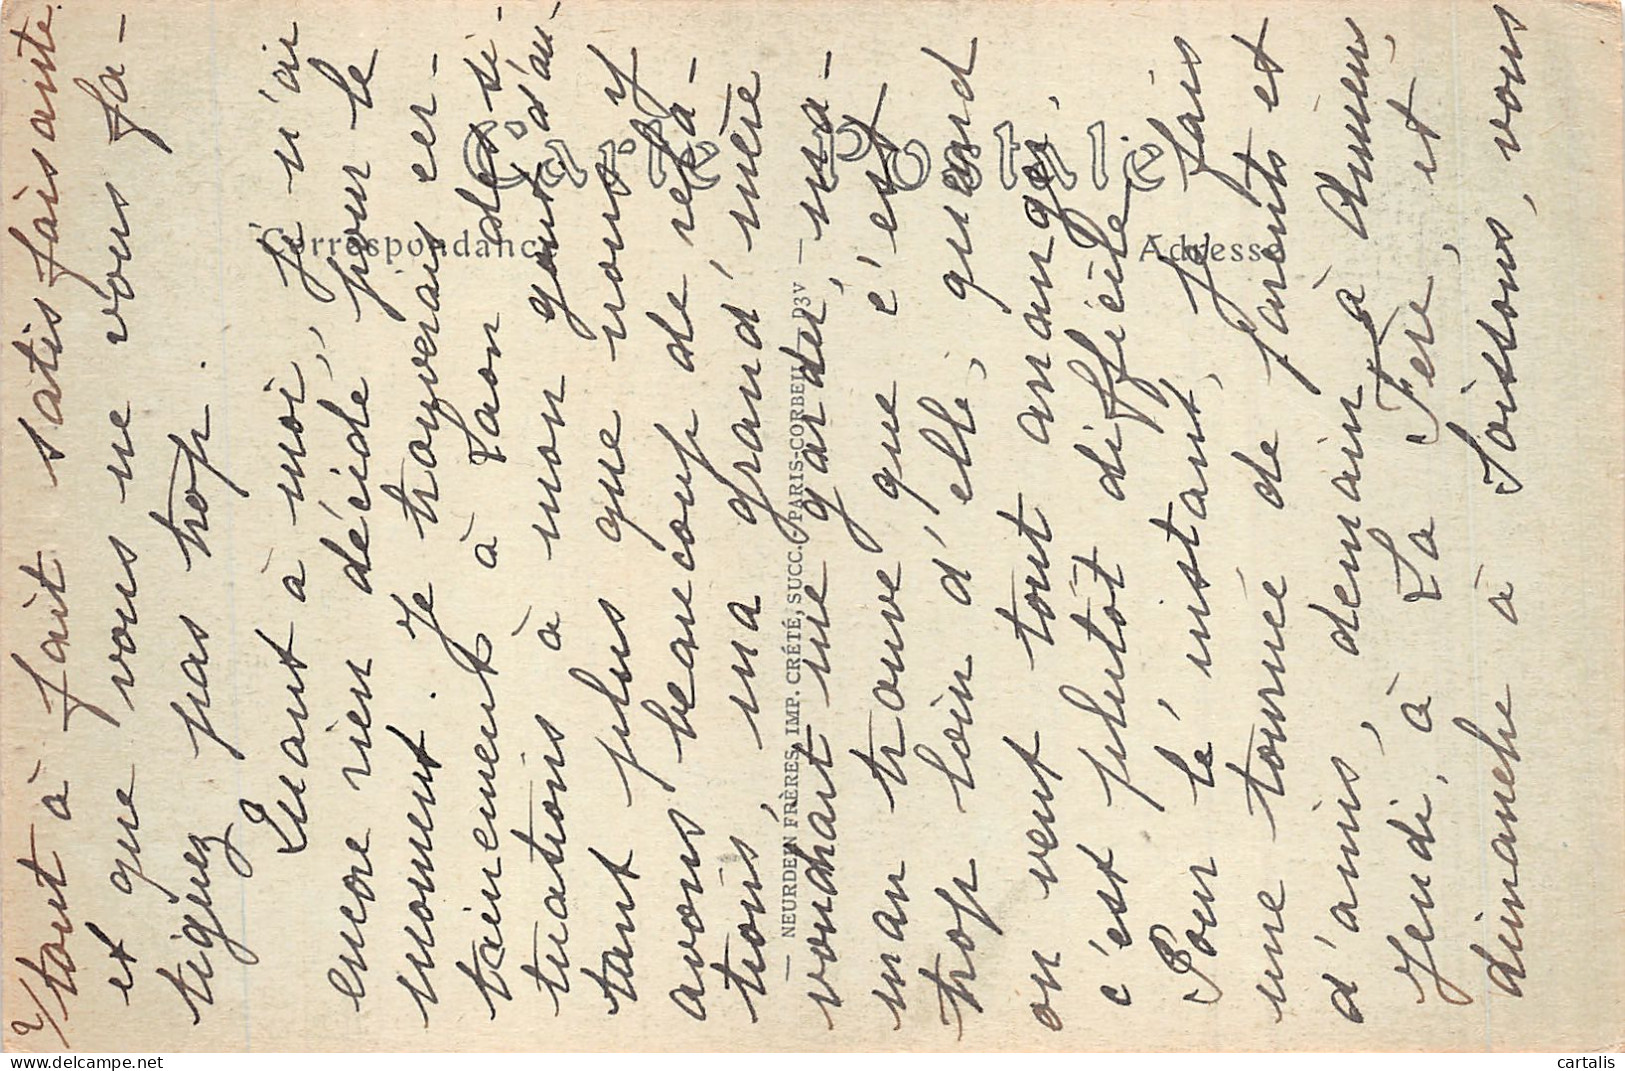 2/ tout à fait satisfaisante.
et que vous ne vous fa-
tiguez pas trop.
Quant à moi, je n'ai
encore rien décidé pour le
moment. Je trouverais cer-
tainement à Laon des si-
tuations à mon goût, d'au-
tant plus que nous y
avons beaucoup de rela-
tions, ma grand'mère
voudrait me garder, ma-
man trouve que c'est
trop loin d'elle, quand
on veut tout manger,
c'est plutôt difficile.
Pour l'instant, je fais
une tournée de parents et
d'amis, demain à Amiens,
Jeudi, à La Fère, et
dimanche à Soissons, vous
Carte Postale
Correspondance
Adresse
— NEURDEIN FRÈRES, IMP. CRÉTÉ, SUCC. - PARIS-CORBEIL D3V —
cartalis